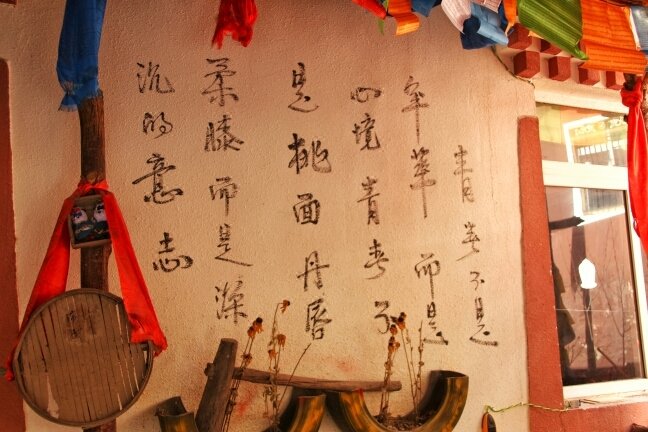 青春不是
年華而是
心境青春不
是桃面丹唇
柔膝而是深
沉的意志